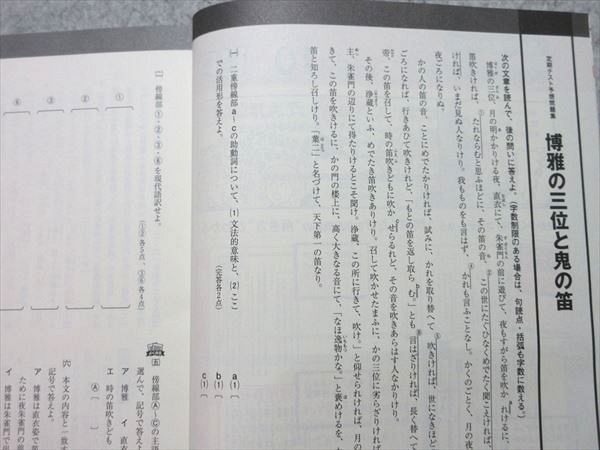 定期テスト予想問題集
博雅の三位と鬼の笛
次の文章を読んで、後の問いに答えよ。(字数制限のある場合は、句読点・括弧も字数に数える。)
博雅の三位、月の明かかりける夜、直衣にて、朱雀門の前に遊びて、夜もすがら笛を吹か
笛吹きければ、①たれならむと思ふほどに、その笛の音、②この世にたぐひなくめでたく聞こえければ、
ければ、いまだ見ぬ人なりけり。我ももの をも言はず、かれも言ふことなし。かくのごとく、月の夜
夜ごろになりぬ。
かの人の笛の音、ことにめでたかりければ、試みに、かれを取り替へて吹きければ、世になきほど
ごろになれば、行きあひて吹きけれど、「もとの笛を返し取らむ。」とも言はざりければ、長く替へて
帝、この笛を召して、時の笛吹きどもに吹かせらるれど、その音を吹きあらはす人なかりけり。
その後、浄蔵といふ、めでたき笛吹きありけり。召して吹かせたまふに、かの三位に劣らざりければ
主、朱雀門の辺りにて得たりけるとこそ聞け。浄蔵、この所に行きて、吹け。」と仰せられければ、月の
きて、この笛を吹きけるに、かの門の楼上に、高く大きなる音にて、「なほ逸物かな。」と褒めけるを、
笛と知ろし召しけり。「葉二」と名づけて、天下第一の笛なり。
一 二重傍線部a~cの助動詞について、(1)文法的意味と、(2)ここ
での活用形を答えよ。
(完答各2点)
a(1)〔
b(1)〔
c(1)〔
二 傍線部①・②・③・⑥を現代語訳せよ。
(①② 各5点、③⑥ 各4点)
①
②
③
⑥
五 傍線部A~Cの主語
選んで、記号で答えよ
ア 博雅 イ 直衣
エ 時の笛吹きども
A〔
六 本文の内容と一致す
記号で答えよ。
ア 博雅は直衣姿で笛
ために夜朱雀門の
イ 博雅は朱雀門で出